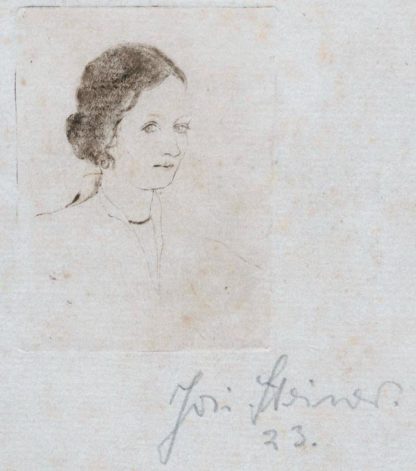 Josi Steiner.
23.